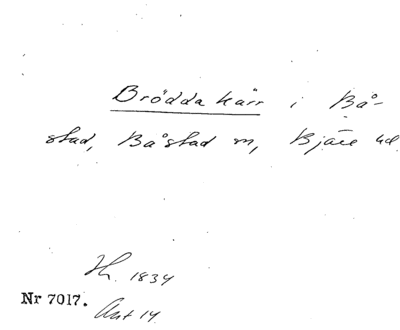 Brödda kärr i Bå-
stad, Båstad m, Bjäre hd.
H. 1834
Nr 7017.
Akt 14